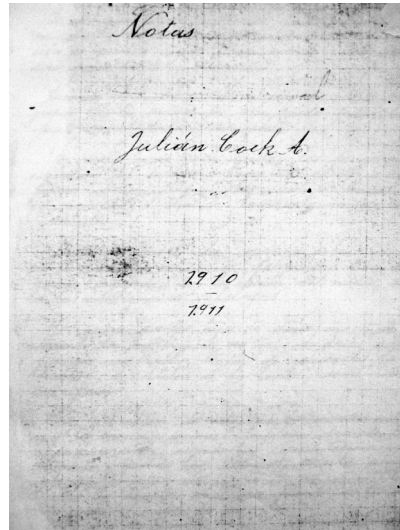 Notas
Julián Cock A.
1910
1911